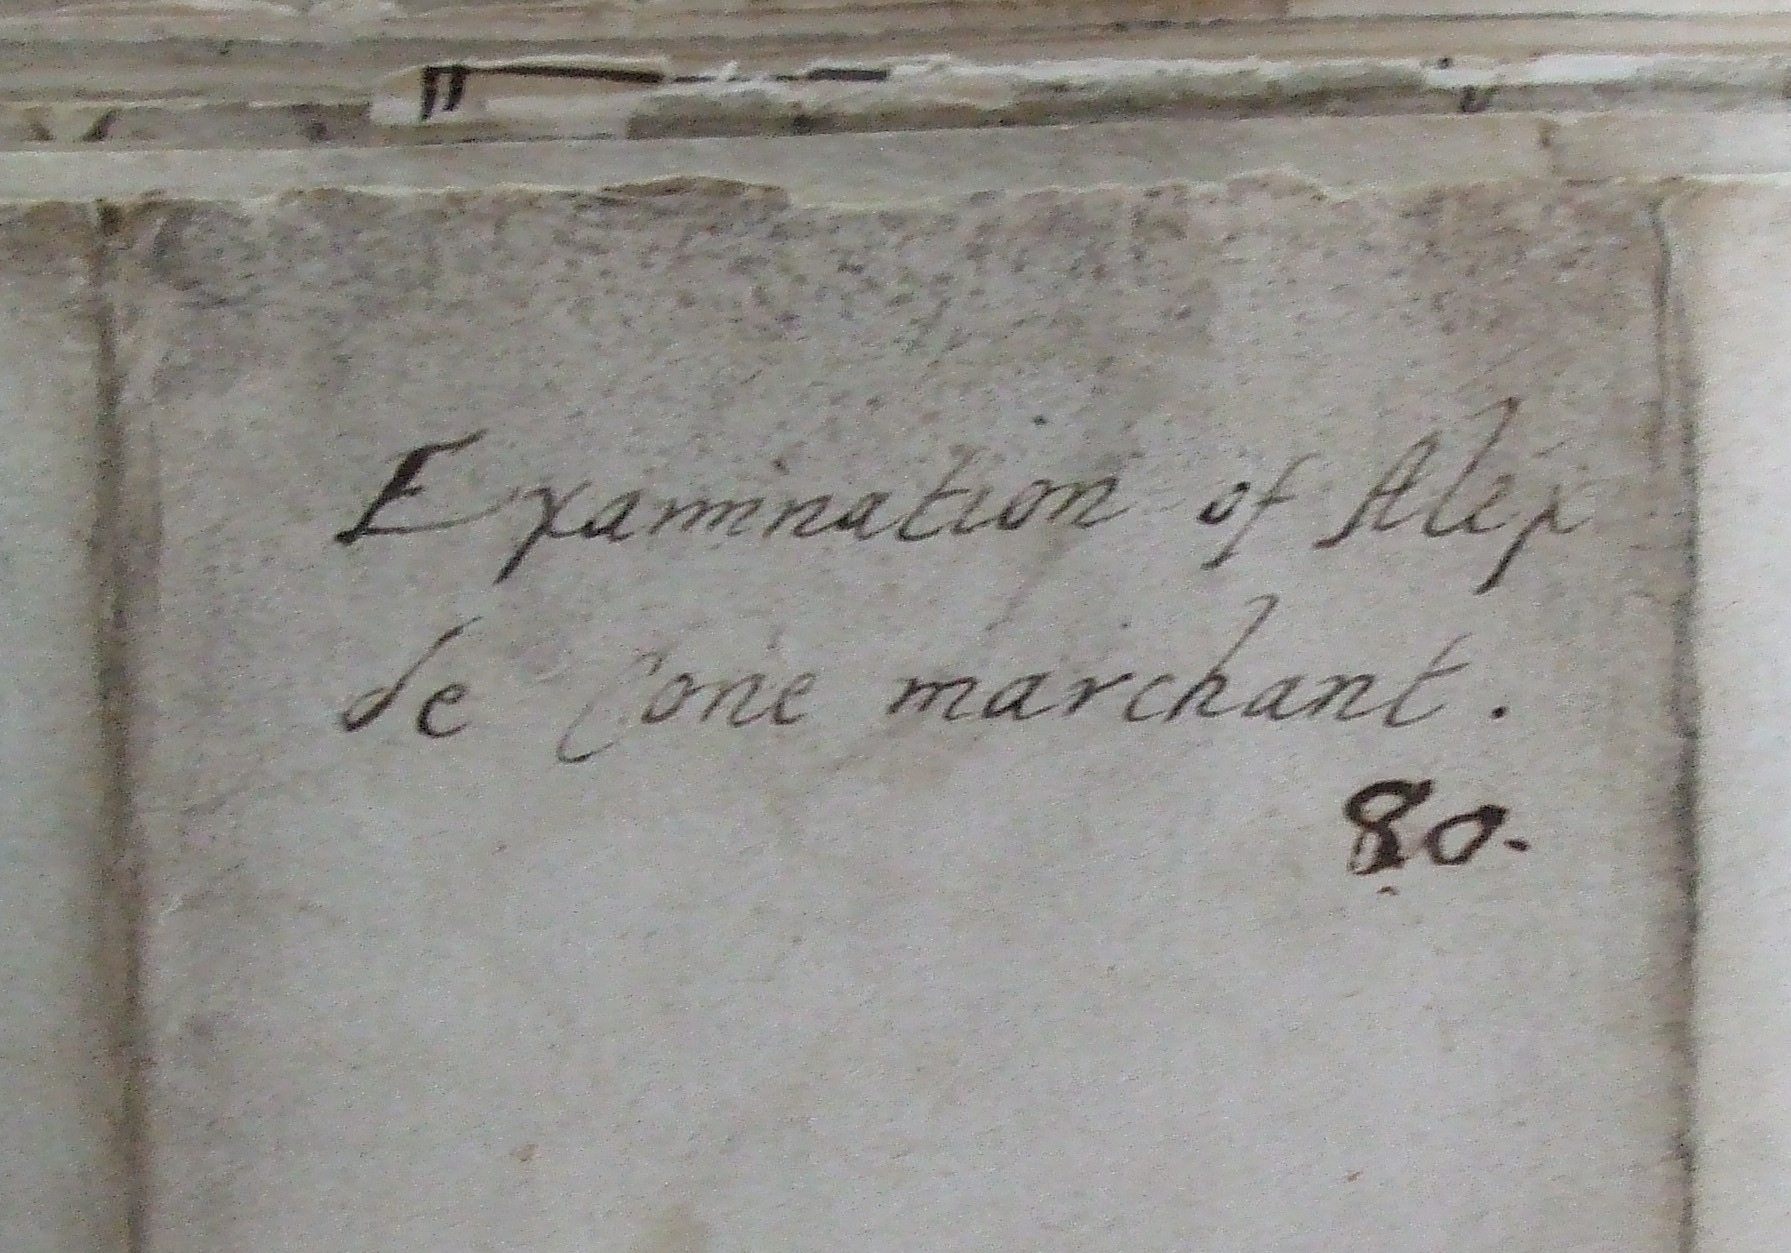 Examination of Alex
de Cone marchant.
80.